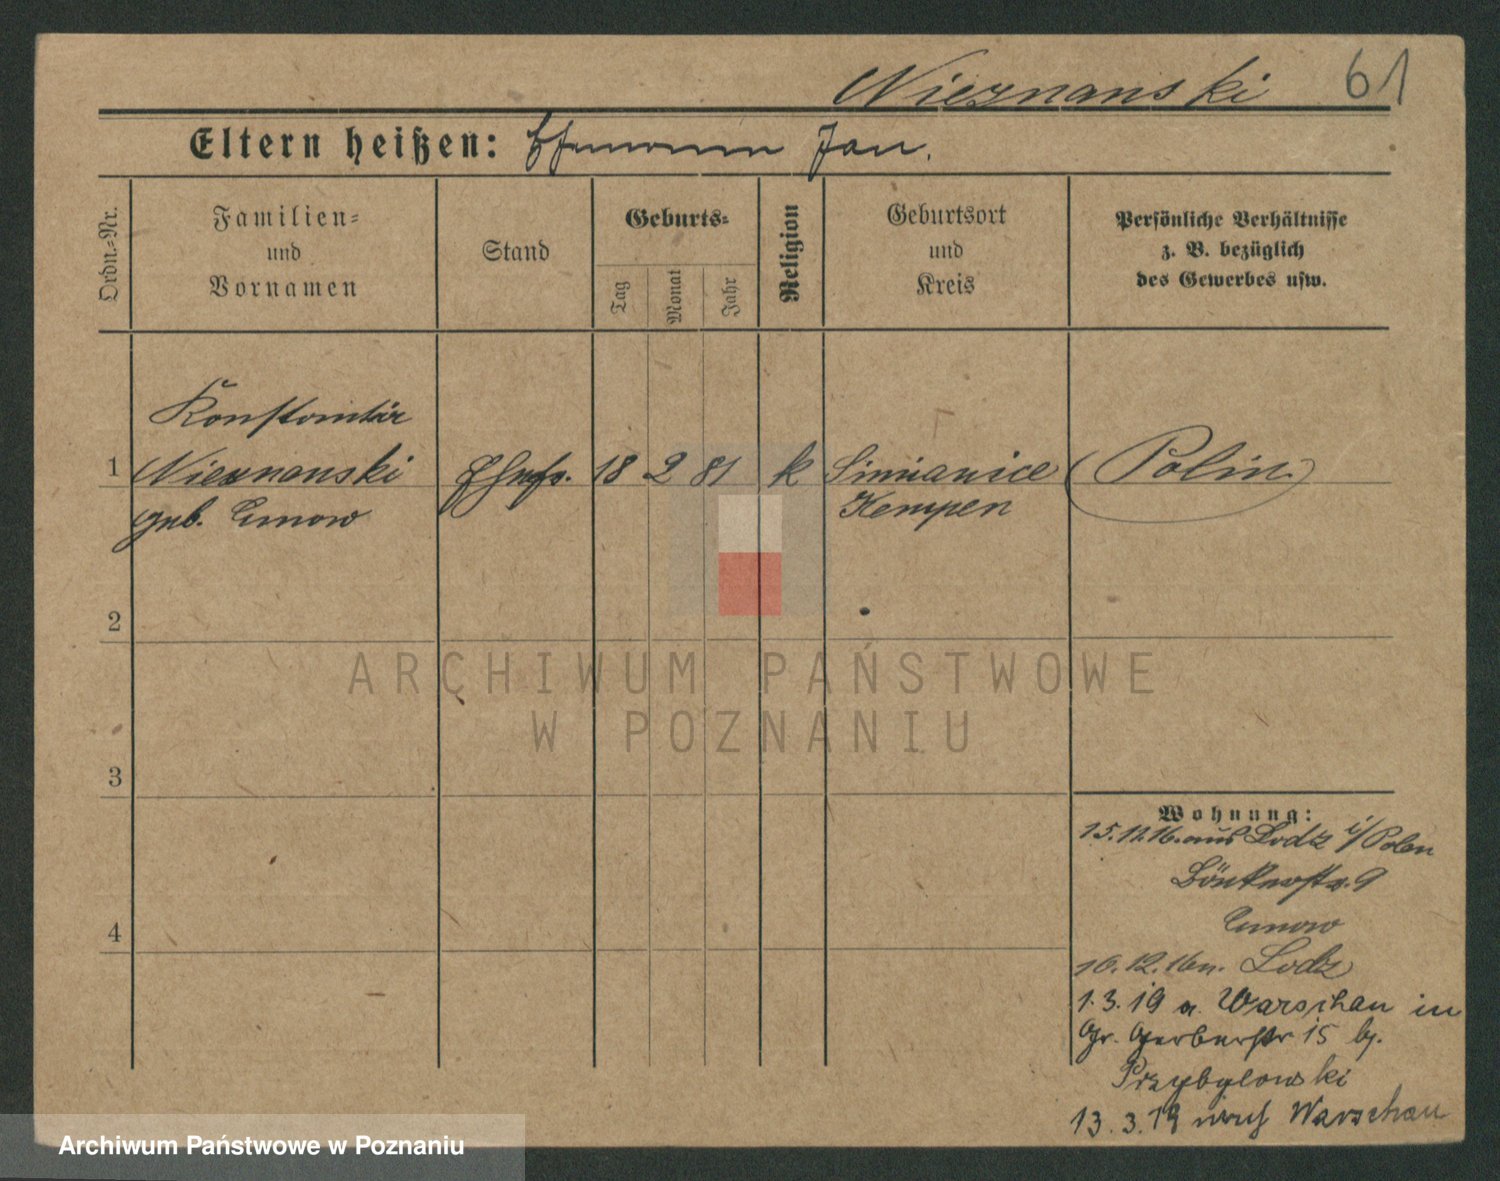 Nieznanski 61
Eltern heißen: Ehemann Jan.
Ordn.=Nr.
Familien=
und
Vornamen
Stand
Geburts=
Tag
Monat
Jahr
Religion
Geburtsort
und
Kreis
Persönliche Verhältnisse
z. B. bezüglich
des Gewerbes usw.
Nieznanski
1
18 2 81 k Simianice (Polin.)
geb.
Kempen
2
3
4
Wohnung:
15.11.16. aus Lodz i/Polen
9
10.12.16 n. Lodz
1.3.19 a. Warschau in
Gr. Gerberstr 15 b.
Przybylowski
13.3.19 nach Warschau
ARCHIWUM PAŃSTWOWE
W POZNANIU
Archiwum Państwowe w Poznaniu